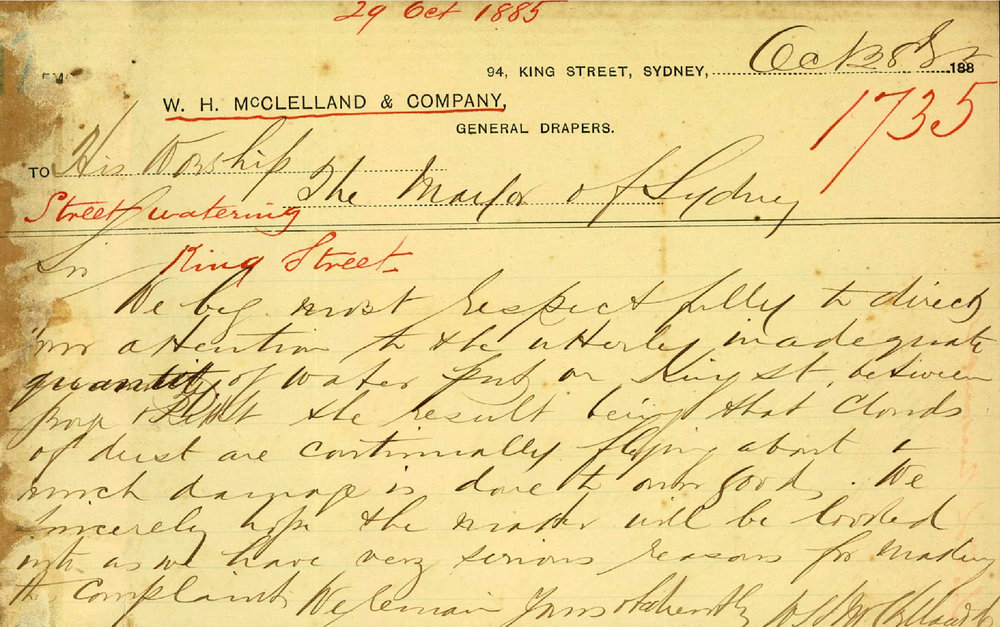 29 Oct 1885
94, KING STREET, SYDNEY, Oct 28th 1885
W. H. McCLELLAND & COMPANY,
1735
GENERAL DRAPERS.
TO His Worship
The Mayor of Sydney
Street watering
King Street
Sir
We beg most respectfully to direct
your attention to the utterley inadequate
quantity of water put on King st, between
& Pitt the result being that clouds
of dust are continually flying about &
much damage is done to our goods. We
sincerely hope the matter will be looked
into as we have very serious reasons for making
this complaint We remain Yours obediently